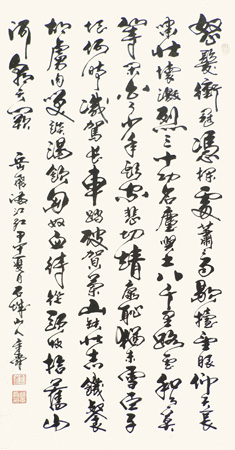 怒髮衝冠憑欄處瀟瀟雨歇擡望眼仰天長
嘯壯懷激烈三十功名塵與土八千里路雲和月莫
等閒白了少年頭空悲切靖康恥猶未雪臣子
恨何時滅駕長車踏破賀蘭山缺壯志饑餐
胡虜肉笑談渴飲匈奴血待從頭收拾舊山
河朝天闕
岳飛滿江紅 夏月石城山人